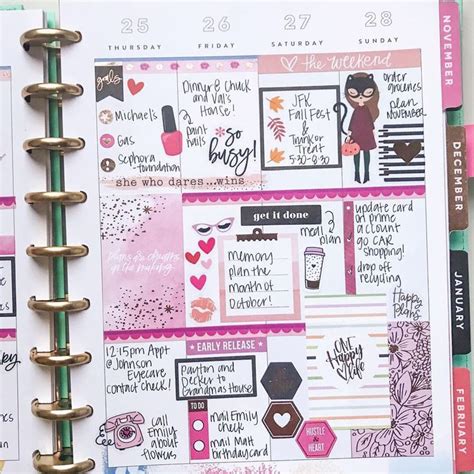 25
THURSDAY
26
FRIDAY
27
SATURDAY
28
SUNDAY
goals
Michael's
Gas
Sephora
-foundation
Dinner @ Chuck
and Val's
House!
paint
nails
so
busy!
the weekend
JFK
Fall Fest
&
Trunk or
Treat
5:30-8:30
order
groceries
plan
NOVEMBER
she who dares...wins
plans are dreams
in the making
get it done
memory
plan the
month of
October!
meal
plan
update card
on prime
account
go CAR
shopping!
drop off
recycling
Happy
Plans
12:15pm Appt
@Johnson
Eyecare
contact check!
call
Emily
about
flowers
EARLY RELEASE
Payton and
Decker to
Grandmas House
TO DO
mail Emily
check
mail Matt
birthday card
ONE
Happy
life
HUSTLE
&
HEART
NOVEMBER
DECEMBER
JANUARY
FEBRUARY